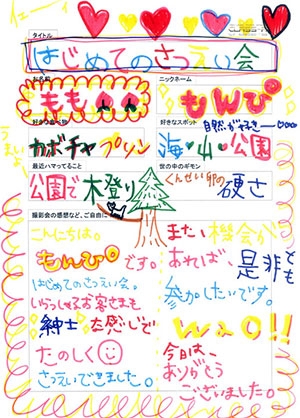 イェーイ
タイトル
はじめてのさつえい会
お名前
もも
ニックネーム
もんぴ
好きな食べ物
うまいよ
カボチャプリン
好きなスポット
自然が好きー
海・山・公園
最近ハマってること
公園で木登り
世の中のギモン
くんせい卵の硬さ
撮影会の感想など、ご自由に
こんにちは。
もんぴです。
はじめてのさつえい会。
いらっしゃるお客さまも
紳士な感じで
たのしく
さつえいできました。
また機会が
あれば、是非でも
参加したいです。
WaO!!
今日は、
ありがとう
ございました。